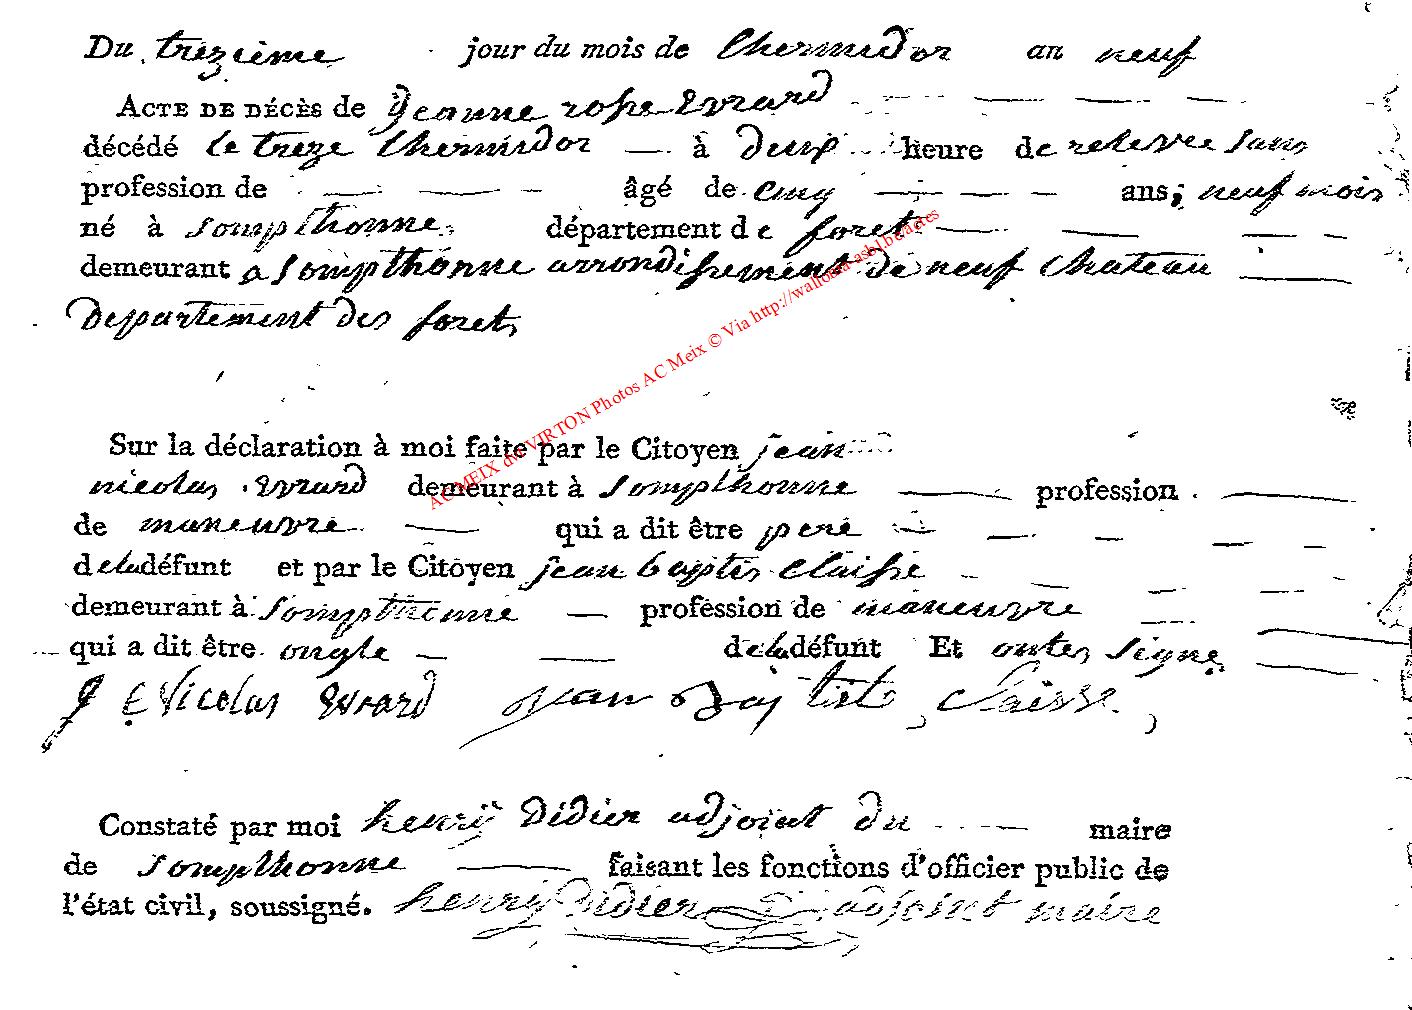 Du trezième jour du mois de thermidor an neuf
ACTE DE DÉCÈS de Jeanne rose Evrard
décédé le treze thermidor — à deux heure de relevee sans
profession de — — - âgé de cinq — — — ans; neuf mois
né à sompthonne département de foret — — — —
demeurant a sompthonne arrondissement de neuf chateau —
departement des forets
AC MEIX dvt VIRTON Photos AC Meix © Via http://wallonia-asbl.be/actes
Sur la déclaration à moi faite par le Citoyen jean
nicolas evrard demeurant à sompthonne — profession —
de maneuvre — qui a dit être pere — — — — —
dela défunt et par le Citoyen jean baptis claisse - — — —
demeurant à sompthonne — profession de maneuvre —
qui a dit être ongle — — dela défunt Et ontes signes
J E Nicolas Evrard jean Baptist Claisse
Constaté par moi henrÿ didier adjoint du — maire
de sompthonne — faisant les fonctions d'officier public de
l'état civil, soussigné. henrÿ didier adjoint maire